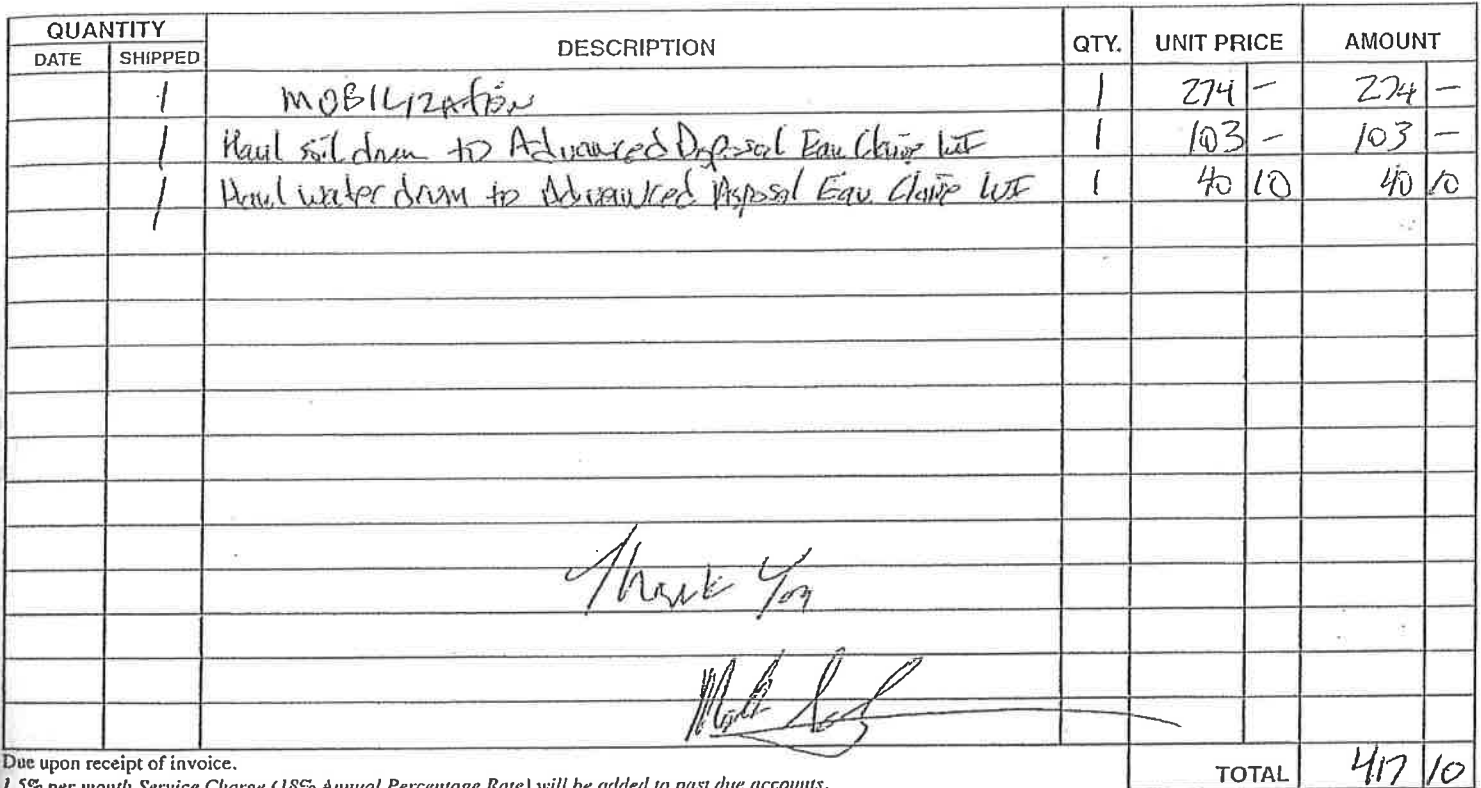 QUANTITY DESCRIPTION QTY. UNIT PRICE AMOUNT
DATE SHIPPED
1 MOBILIZATION 1 274 - 274 -
1 Haul soil drum to Advanced Disposal Eau Claire WI 1 103 - 103 -
1 Haul water drum to Advanced Disposal Eau Claire WI 1 40 10 40 10
Thank You
Due upon receipt of invoice. TOTAL 417 10
1.5% per month Service Charge (18% Annual Percentage Rate) will be added to past due accounts.